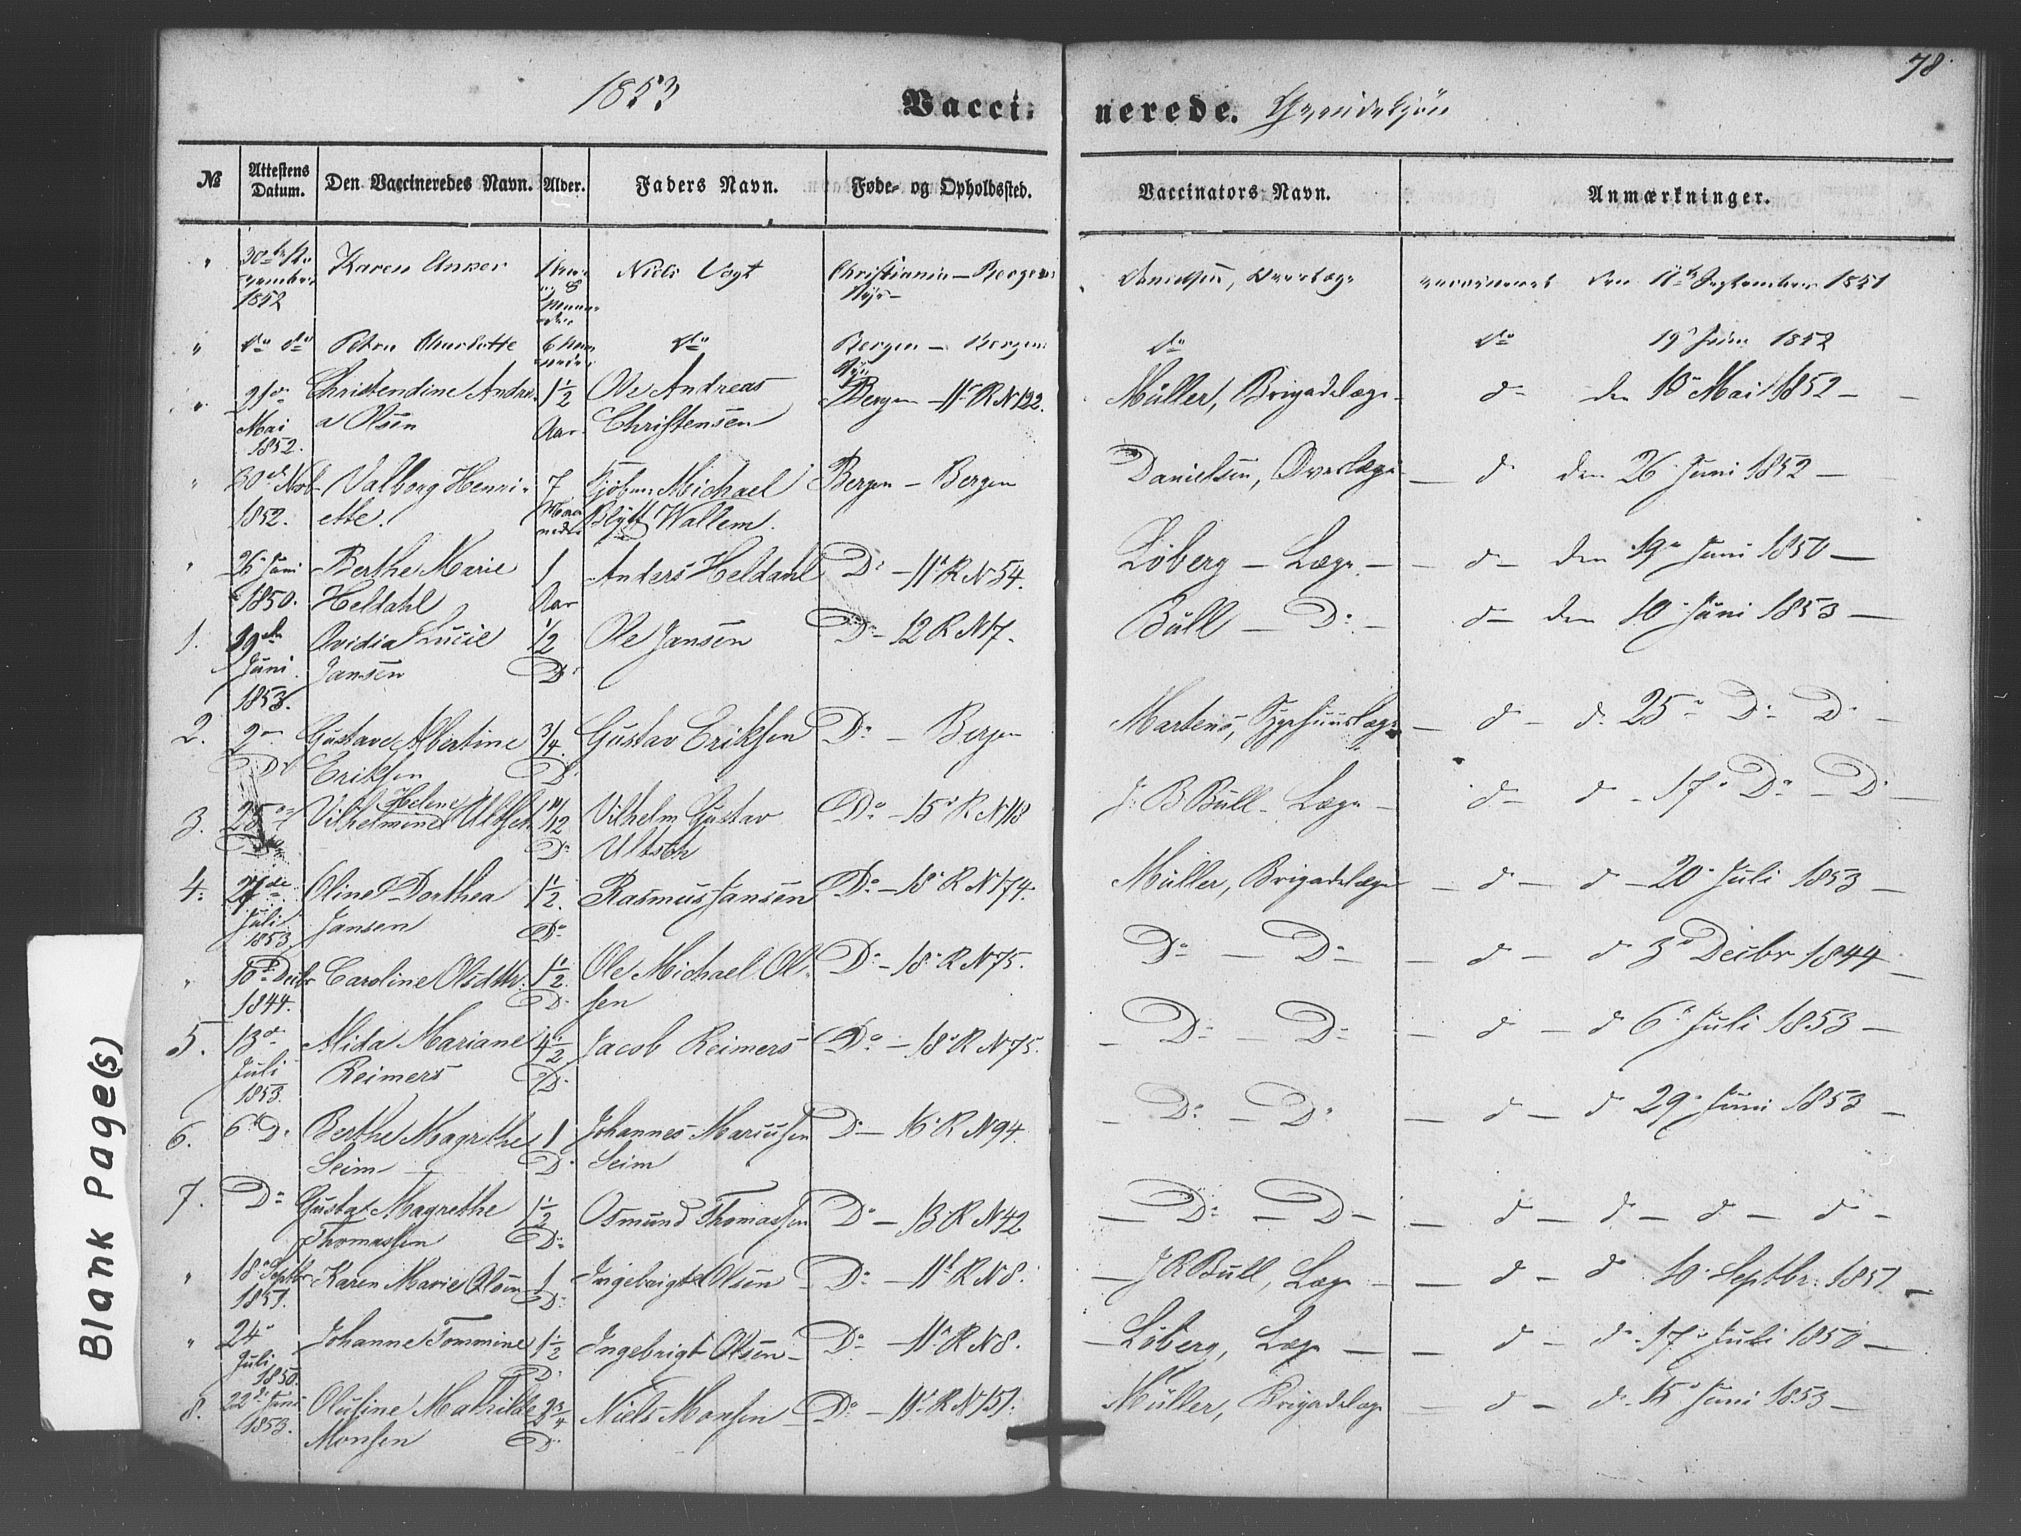 78
1853 Vacci: nerede. Qvindekjøn
№ Attestens Datum. Den Vaccineredes Navn. Alder. Faders Navn. Føde- og Opholdssted. Vaccinators Navn. Anmærkninger.
" 1852 Karen Anker Niels Vogt Christiania — Bergen Danielsen, Overlæge vaccineret den 11te September 1851
" do do Petra Charlotte 6 do Bergen — Bergen do do 19 Juni 1852
" 21de Mai 1852. Christendine Andrea Olsen 1½ Aar Ole Andreas Christensen Bergen — 11te R N 122. Müller, Brigadelæge d— den 18 Mai 1852 —
" 30te Novb 1852. Valborg Henriette. 7 Maaneder Kjøbm: Michael Blytt Wallem. Bergen — Bergen Danielsen, Overlæge — d— den 26 Juni 1852 —
" 26 Juni 1850. Berthe Marie Heldahl 1 Aar Anders Heldahl Do — 11te R N 54. Löberg — Læge — — d— den 19de Juni 1850 —
1. 19de Juni 1853. Ovidia Lucie Jansen ½ Do Ole Jansen Do — 12 R N 17. Bull — Do — d— den 10 Juni 1853 —
2. 2den Do Gustave Albertine Eriksen ¾ Do Gustav Eriksen Do — Bergen Martens, — d — d. 25 Do Do —
3. 25 Do Vilhelmine Helene Ultsch Do Vilhelm Gustav Ultsch Do — 15 R N 118 J. B Bull — Læge — d— d — 17 Do — Do —
4. 21de Juli 1853 Oline Dorthea Jansen 1½. Do Rasmus Jansen Do — 18 R N 174. Müller, Brigadelæge — d — d — 20 Juli 1853 —
" 10de Decbr 1844. Caroline Olsdtr. 1½. Do Ole Michael Olsen Do — 18 R N 75. Do — Do — d — d 3 Decbr 1844 —
5. 13de Juli 1853. Alida Mariane Reimers 4½ Do Jacob Reimers Do — 18 R N 75. — Do — Do — d — d 6 Juli 1853 —
6. 6te Do Berthe Magrethe Seim 1 Do Johannes Mariusen Seim Do — 16 R N 94. — Do — Do — d — d 29 Juni 1853 —
7. Do Gusta Magrethe Thomassen 1½ Do Osmund Thomassen Do — 13 R N 42 — Do — Do — — d — d — d — d —
" 18de Septbr 1851. Karen Marie Olsen 1 Do Ingebrigt Olsen — Do — 11te R N 8. — J R Bull, Læge — — d — d 10 Septbr. 1851 —
" 24 Juli 1850. Johanne Tommine 1½ Do Ingebrigt Olsen — Do — 11te R N 8. — Löberg, Læge — — d — d 17 Juli 1850 —
8. 22de Juni 1853. Olufine Mathilde Monsen 2¾ Do Niels Monsen — Do — 11te R N 151. Müller, Brigadelæge — d — d 15 Juni 1853 —
Blank Page(s)